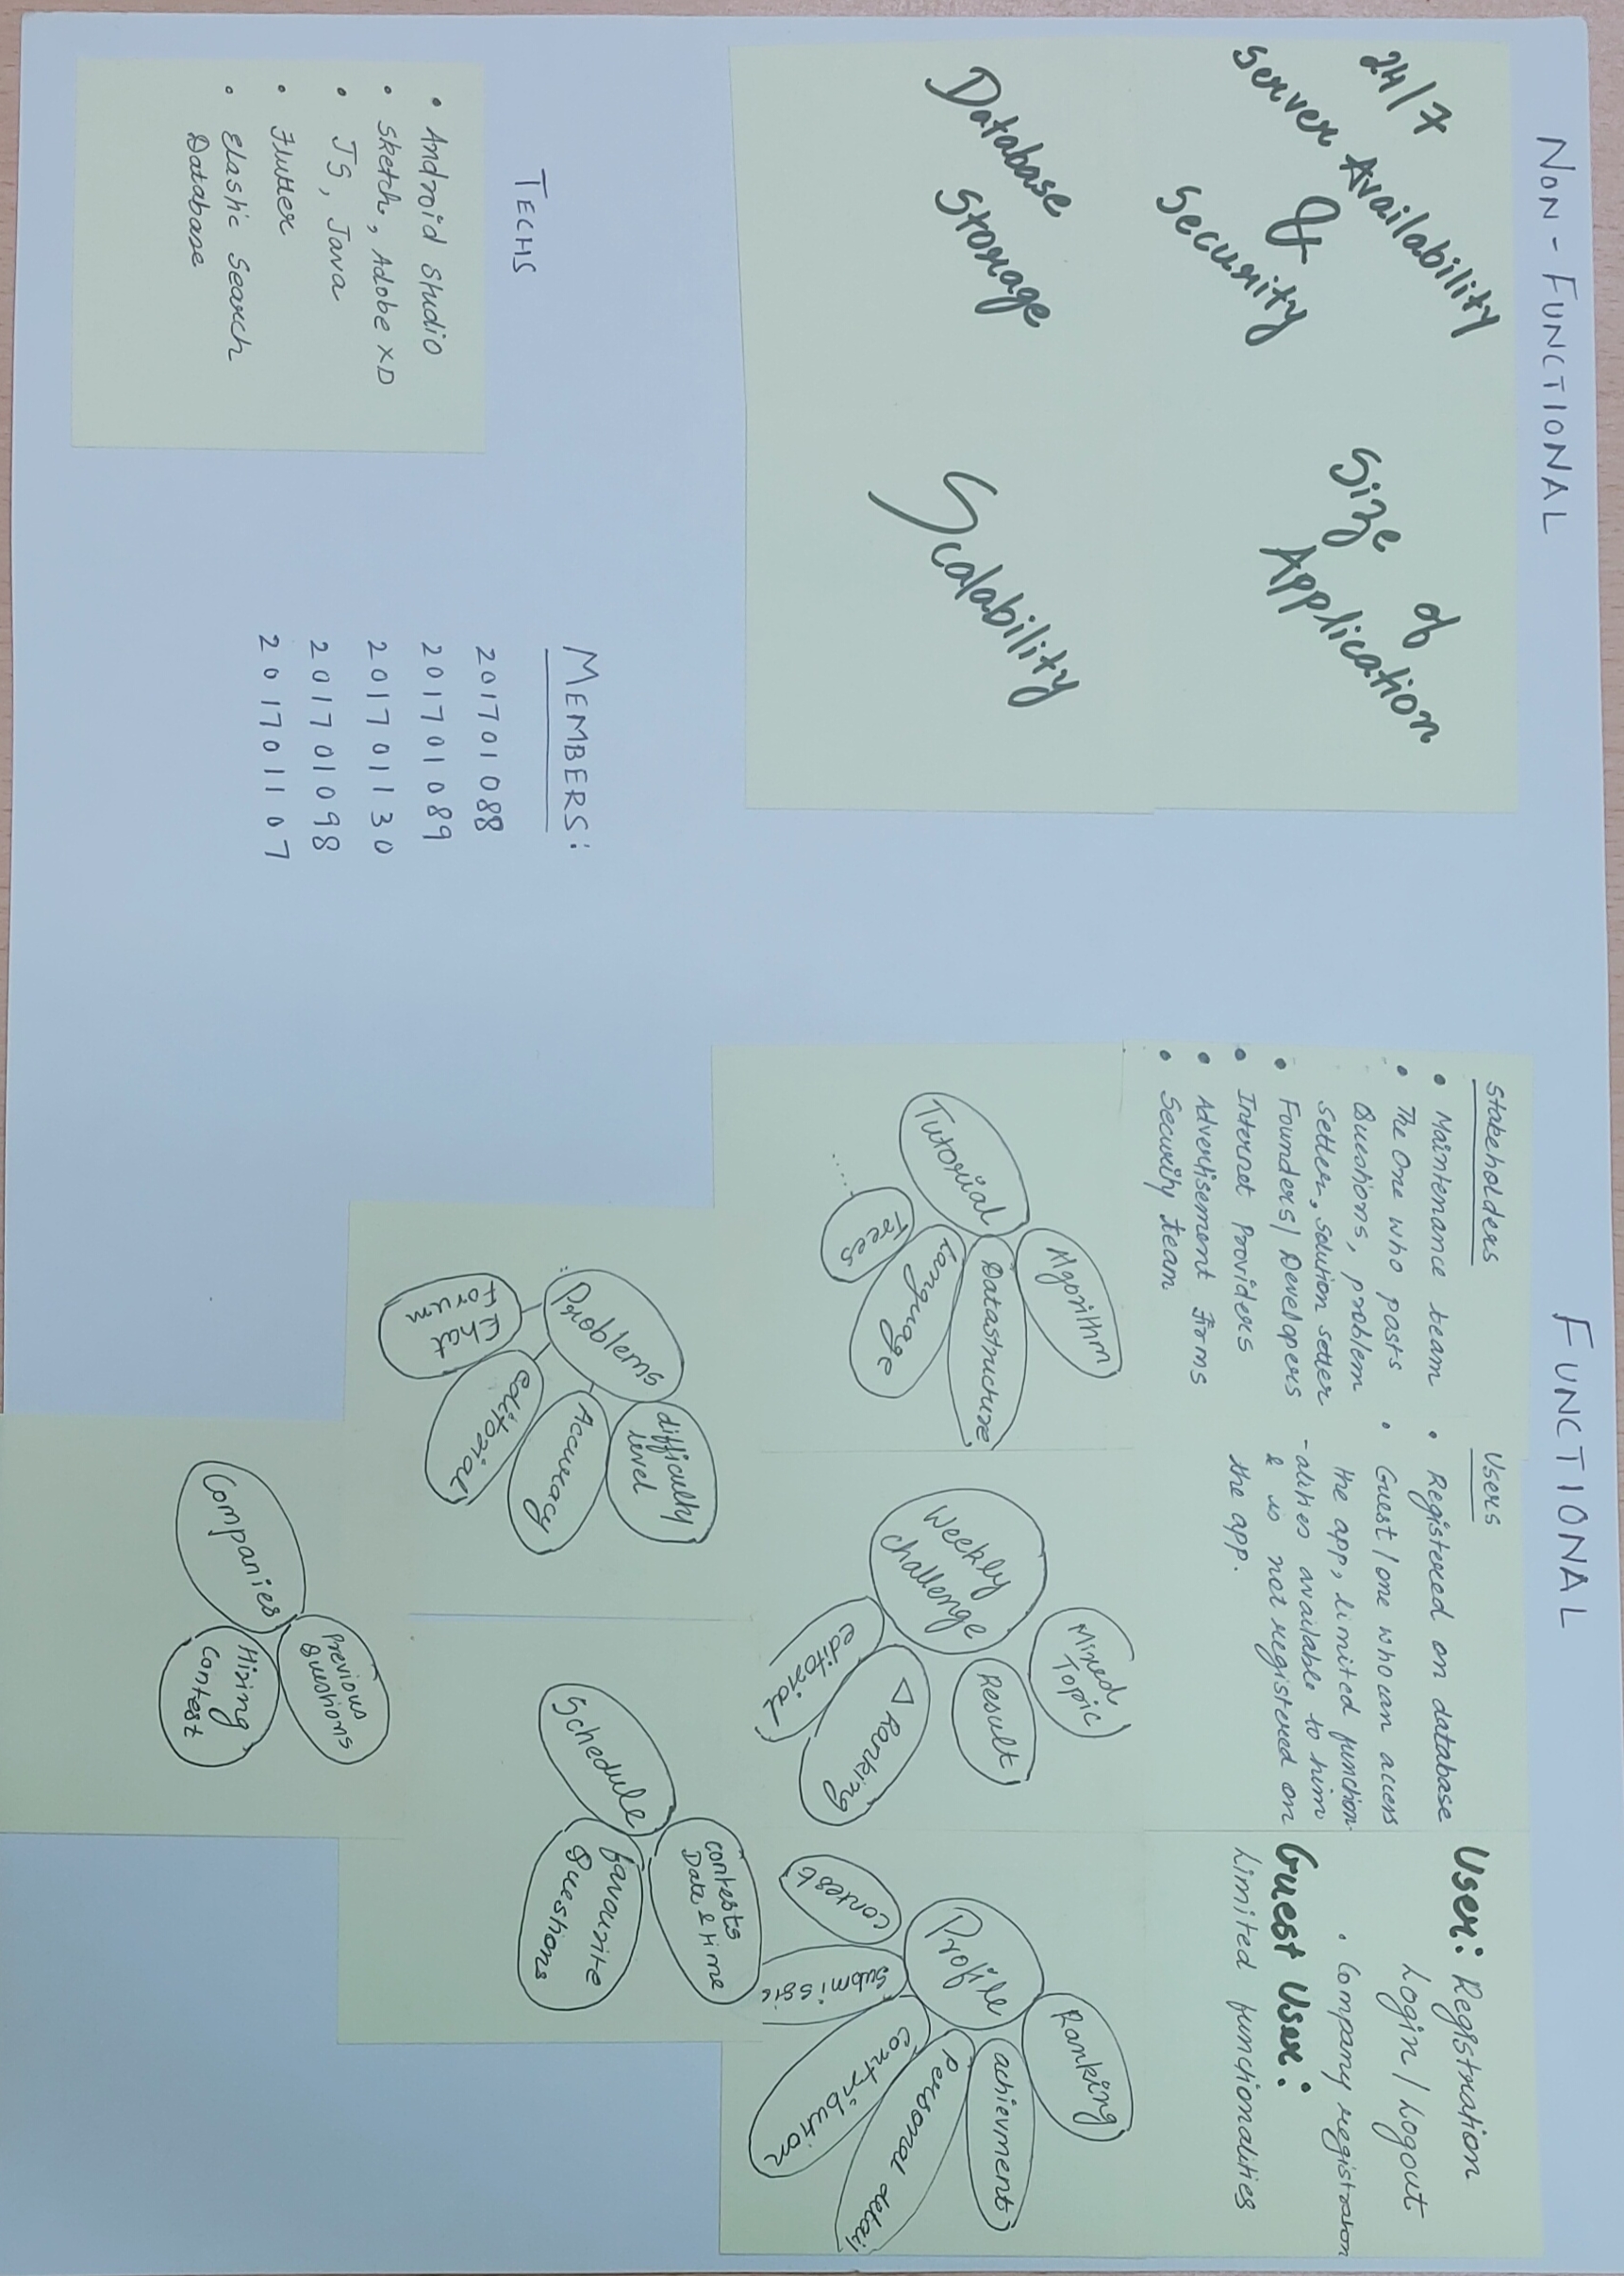 NON-FUNCTIONAL
24/7
Server Availability
&
Security
Size of
Application
Database
Storage
Scalability
TECHS
• Android Studio
• Sketch, Adobe XD
• JS, Java
• Flutter
• Elastic Search
Database
MEMBERS:
201701088
201701089
201701130
201701098
201701107
FUNCTIONAL
Stakeholders
• Maintenance team
• The One who posts
Questions, problem
Setter, Solution setter
• Founders/Developers
• Internet Providers
• Advertisement Firms
• Security team
Users
• Registered on database
• Guest/one who can access
the app, limited function-
-alities available to him
& is not registered on
the app.
User: Registration
Login/Logout
• Company registration
Guest User:
Limited functionalities
Tutorial
Algorithm
Datastructure
Language
Trees
.....
Weekly
challenge
Mixed
Topic
Result
Ranking
editorial
Profile
Ranking
achievment
Personal detail
Contribution
Submissio
Contest
Problems
difficulty
level
Accuracy
editorial
Chat
Forum
Schedule
contests
Date & time
favourite
Questions
Companies
Previous
Questions
Hiring
Contest